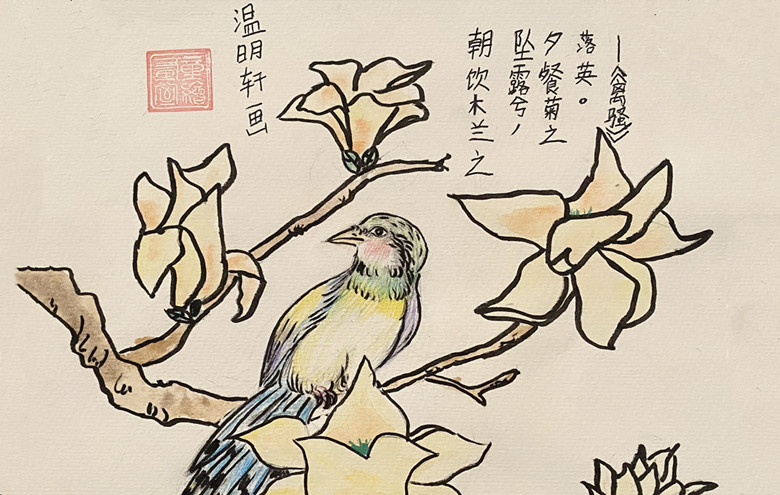 朝饮木兰之
坠露兮，
夕餐菊之
落英。
—《离骚》
温明轩画